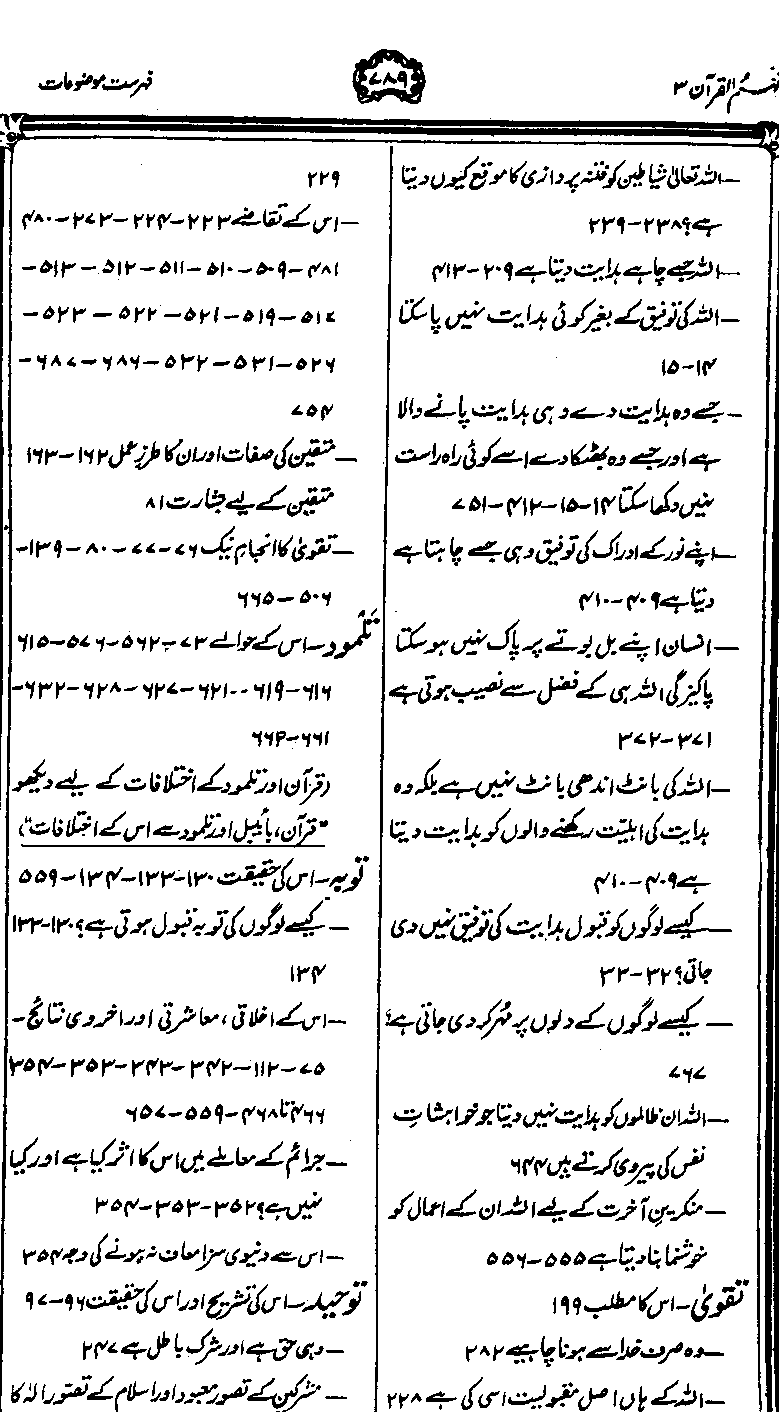 تفہیم القرآن ۳
۷۸۹
فہرست موضوعات
—اللہ تعالیٰ شیاطین کو فتنہ پردازی کا موقع کیوں دیتا
ہے؟ ۲۳۸-۲۳۹
—اللہ جسے چاہے ہدایت دیتا ہے ۲۰۹-۴۱۳
—اللہ کی توفیق کے بغیر کوئی ہدایت نہیں پا سکتا
۱۴-۱۵
—جسے وہ ہدایت دے وہی ہدایت پانے والا
ہے اور جسے وہ بھٹکا دے اسے کوئی راہ راست
نہیں دکھا سکتا ۱۴-۱۵-۴۱۲-۷۵۱
—اپنے نور کے ادراک کی توفیق وہی جسے چاہتا ہے
دیتا ہے ۴۰۹-۴۱۰
—انسان اپنے بل بوتے پر پاک نہیں ہو سکتا
پاکیزگی اللہ ہی کے فضل سے نصیب ہوتی ہے
۳۷۱-۳۷۲
—اللہ کی بانٹ اندھی بانٹ نہیں ہے بلکہ وہ
ہدایت کی اہلیت رکھنے والوں کو ہدایت دیتا
ہے ۴۰۹-۴۱۰
—کیسے لوگوں کو قبول ہدایت کی توفیق نہیں دی
جاتی؟ ۳۲-۳۳
—کیسے لوگوں کے دلوں پر مُہر کر دی جاتی ہے؟
۷۶۷
—اللہ ان ظالموں کو ہدایت نہیں دیتا جو خواہشاتِ
نفس کی پیروی کرتے ہیں ۶۴۴
—منکرینِ آخرت کے لیے اللہ ان کے اعمال کو
خوشنما بنا دیتا ہے ۵۵۵-۵۵۶
تقویٰ—اس کا مطلب ۱۹۹
—وہ صرف خدا سے ہونا چاہیے ۲۸۲
—اللہ کے ہاں اصل مقبولیت اسی کی ہے ۲۲۸
۲۲۹
—اس کے تقاضے ۲۲۳-۲۲۴-۲۷۳-۴۸۰
۴۸۱-۵۰۹-۵۱۰-۵۱۱-۵۱۲-۵۱۳-
۵۱۷-۵۱۹-۵۲۱-۵۲۲-۵۲۳-
۵۲۶-۵۳۱-۵۳۲-۶۸۶-۶۸۷-
۷۵۴
—متقین کی صفات اور ان کا طرزِ عمل ۱۶۲-۱۶۳
متقین کے لیے بشارت ۸۱
—تقویٰ کا انجامِ نیک ۷۶-۷۷-۸۰-۱۳۹-
۵۰۶-۶۶۵
تَلْمود—اس کے حوالے ۷۳-۵۶۲-۵۷۶-۶۱۵
۶۱۶-۶۱۹-۶۲۱-۶۲۷-۶۲۸-۶۳۲-
۶۶۱-۶۶۴
(قرآن اور تلمود کے اختلافات کے لیے دیکھو
”قرآن، بائیبل اور تلمود سے اس کے اختلافات“)
توبہ—اس کی حقیقت ۱۳۰-۱۳۳-۱۳۴-۵۵۹
—کیسے لوگوں کی توبہ قبول ہوتی ہے؟ ۱۳۰-۱۳۳
۱۳۴
—اس کے اخلاقی، معاشرتی اور اخروی نتائج-
۷۵-۱۱۲-۳۴۲-۳۴۳-۳۵۳-۳۵۴
۴۶۶ تا ۴۶۸-۵۵۹-۶۵۷
—جرائم کے معاملے میں اس کا اثر کیا ہے اور کیا
نہیں ہے؟ ۳۵۲-۳۵۳-۳۵۴
—اس سے دنیوی سزا معاف نہ ہونے کی وجہ ۳۵۴
توحید—اس کی تشریح اور اس کی حقیقت ۹۶-۹۷
—وہی حق ہے اور شرک باطل ہے ۲۴۷
—مشرکین کے تصور معبود اور اسلام کے تصور الٰہ کا